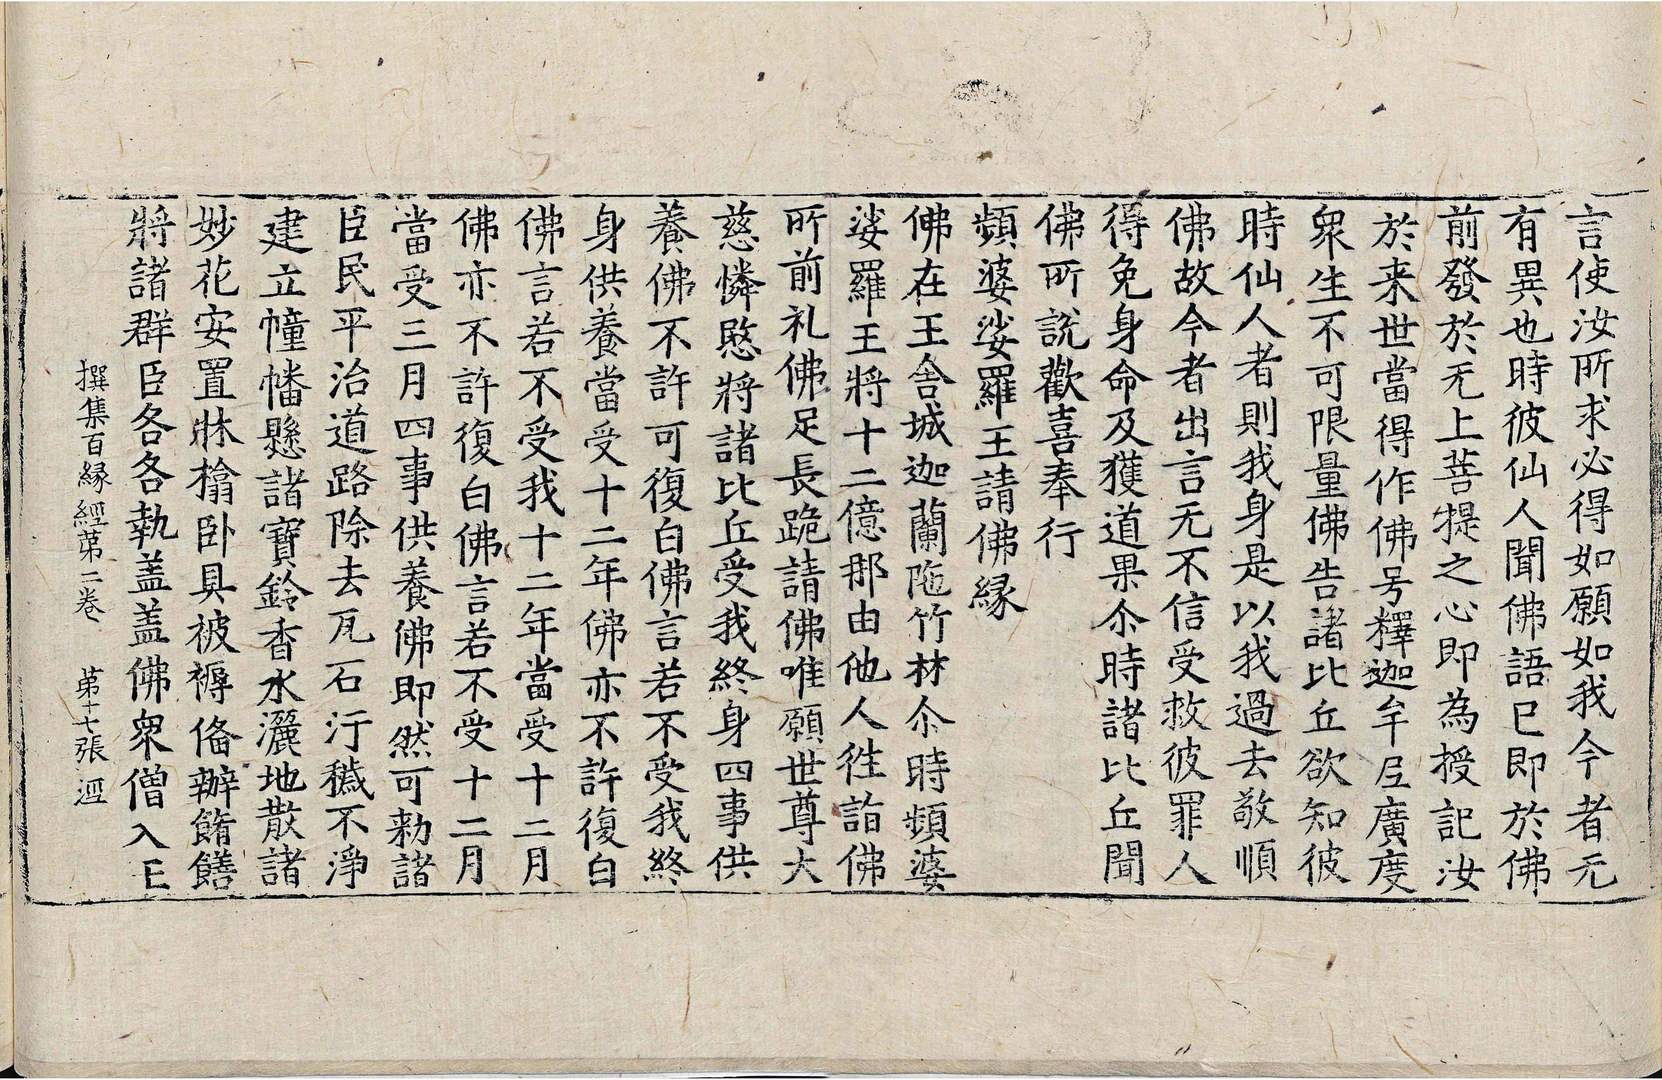 言使汝所求必得如願如我今者无
有異也時彼仙人聞佛語已即於佛
前發於无上菩提之心即為授記汝
於来世當得作佛号釋迦牟𡰱廣度
衆生不可限量佛告諸比丘欲知彼
時仙人者則我身是以我過去敬順
佛故今者出言无不信受救彼罪人
得免身命及獲道果尒時諸比丘聞
佛所說歡喜奉行
頻婆娑羅王請佛緣
佛在王舍城迦蘭陁竹林尒時頻婆
娑羅王將十二億那由他人徃詣佛
所前礼佛足長跪請佛唯願世尊大
慈憐愍將諸比丘受我終身四事供
養佛不許可復白佛言若不受我終
身供養當受十二年佛亦不許復白
佛言若不受我十二年當受十二月
佛亦不許復白佛言若不受十二月
當受三月四事供養佛即然可勑諸
臣民平治道路除去瓦石汙穢不淨
建立幢幡懸諸寶鈴香水灑地散諸
妙花安置牀榻卧具被褥俻辦餚饍
將諸群臣各各執盖盖佛衆僧入王
撰集百緣經第二卷 第十七張 逕